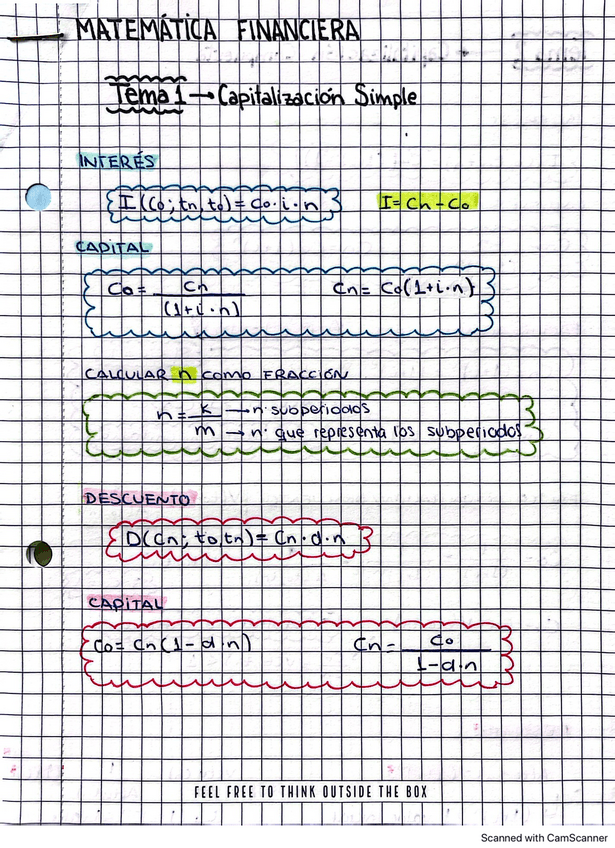 MATEMÁTICA FINANCIERA
Tema 1 → Capitalización Simple
INTERÉS
I (C₀; tn, t₀) = C₀ · i · n
I = Cn - C₀
CAPITAL
C₀ = Cn / (1 + i · n)
Cn = C₀ (1 + i · n)
CALCULAR n COMO FRACCIÓN
n = k → nº subperiodos
m → nº que representa los subperiodos
DESCUENTO
D (Cn; t₀, tn) = Cn · d · n
CAPITAL
C₀ = Cn (1 - d · n)
Cn = C₀ / 1 - d · n
FEEL FREE TO THINK OUTSIDE THE BOX
Scanned with CamScanner